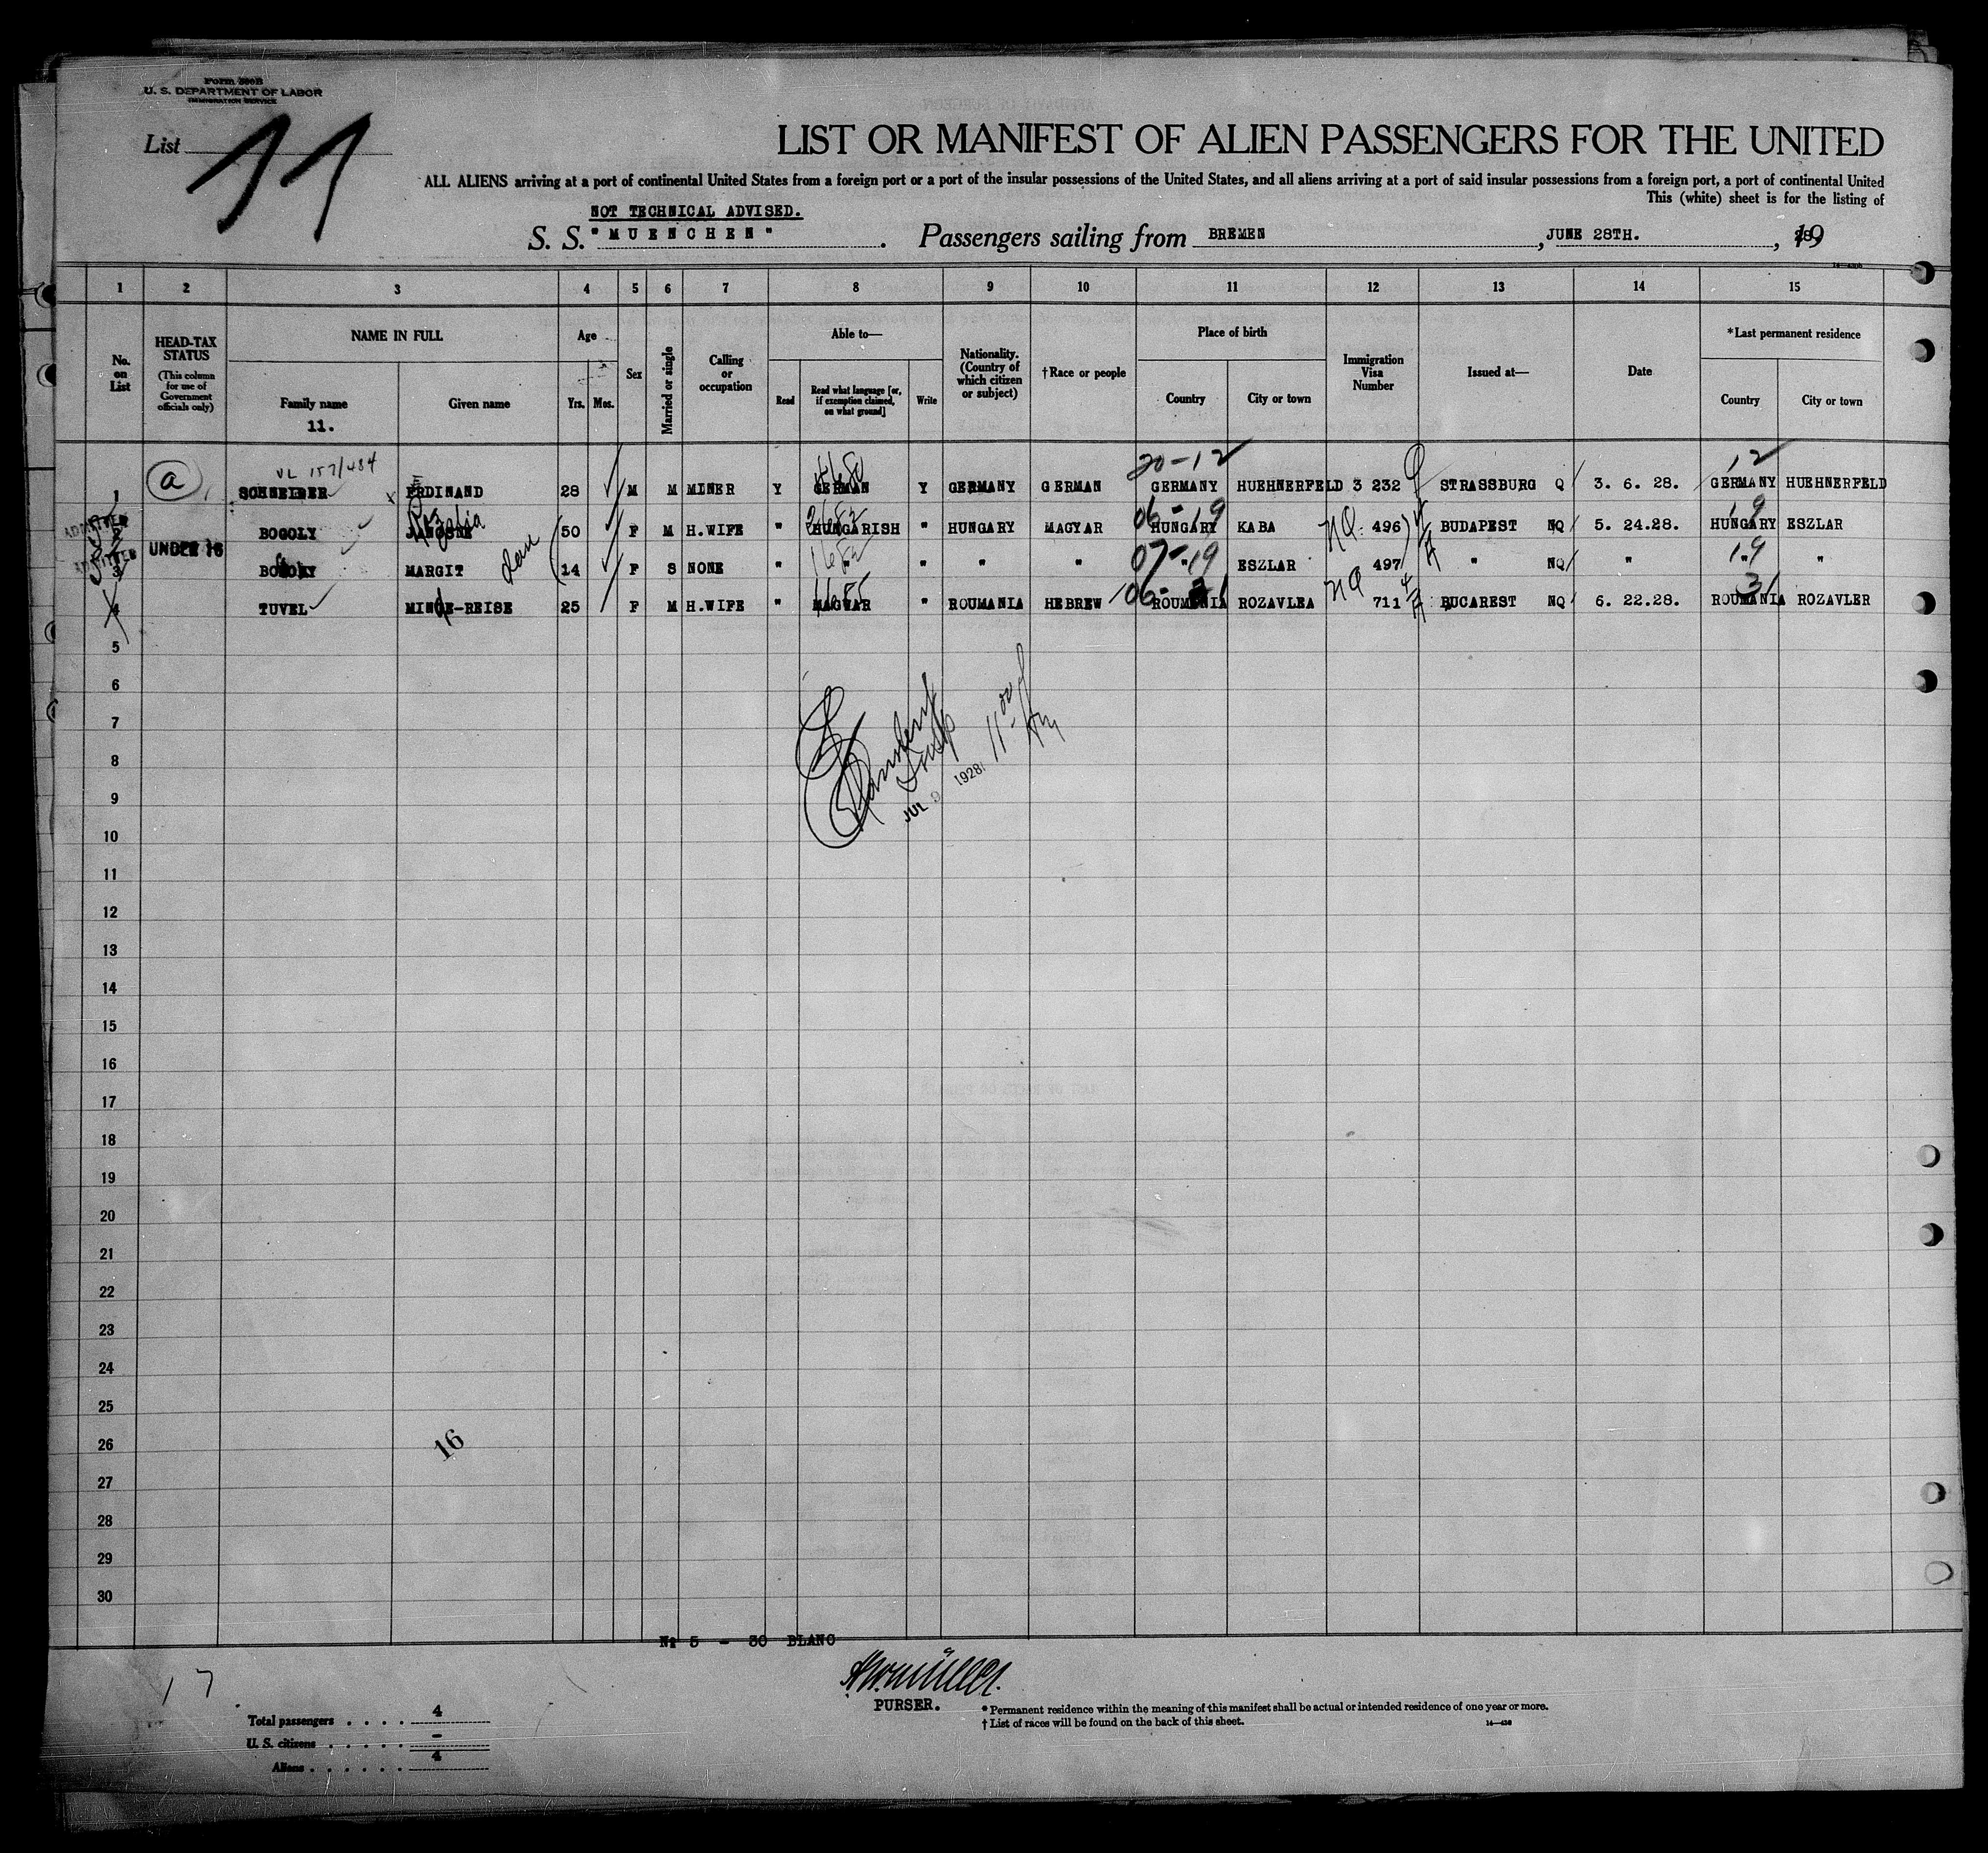 Form 500B
U. S. DEPARTMENT OF LABOR
IMMIGRATION SERVICE
List 11
LIST OR MANIFEST OF ALIEN PASSENGERS FOR THE UNITED
ALL ALIENS arriving at a port of continental United States from a foreign port or a port of the insular possessions of the United States, and all aliens arriving at a port of said insular possessions from a foreign port, a port of continental United
This (white) sheet is for the listing of
NOT TECHNICAL ADVISED.
S. S. "MUENCHEN". Passengers sailing from BREMEN, JUNE 28TH., 1928
1 2 3 4 5 6 7 8 9 10 11 12 13 14 15
No. on List
HEAD-TAX STATUS
(This column for use of Government officials only)
NAME IN FULL
Family name
Given name
11.
Age
Yrs. Mos.
Sex
Married or single
Calling or occupation
Able to—
Read
Read what language [or, if exemption claimed, on what ground]
Write
Nationality. (Country of which citizen or subject)
†Race or people
Place of birth
Country
City or town
Immigration Visa Number
Issued at—
Date
*Last permanent residence
Country
City or town
VL 157/484 20-12 12
1 a SCHNEIDER FERDINAND 28 M M MINER Y GERMAN Y GERMANY GERMAN GERMANY HUEHNERFELD 3 232 Q STRASSBURG Q 3. 6. 28. GERMANY HUEHNERFELD
Rozalia 06-19 19
ADMITTED 2 BOGOLY JANOSNE 50 F M H.WIFE " HUNGARISH " HUNGARY MAGYAR HUNGARY KABA NQ 496 BUDAPEST NQ 5. 24.28. HUNGARY ESZLAR
UNDER 16
dau 07-19 19
ADMITTED 3 BOGOLY MARGIT 14 F S NONE " " " " " " ESZLAR 497 " NQ " " "
06-31 31
4 TUVEL MINDE-REISE 25 F M H.WIFE " MAGYAR " ROUMANIA HEBREW ROUMANIA ROZAVLEA NQ 711 BUCAREST NQ 6. 22.28. ROUMANIA ROZAVLER
5
6
7
8
JUL 9 1928 11 00
9
10
11
12
13
14
15
16
17
18
19
20
21
22
23
24
25
26
16
27
28
29
30
No 5 - 30 BLANC
PURSER.
17
Total passengers . . . . 4
U. S. citizens . . . . . -
Aliens . . . . . . 4
* Permanent residence within the meaning of this manifest shall be actual or intended residence of one year or more.
† List of races will be found on the back of this sheet.